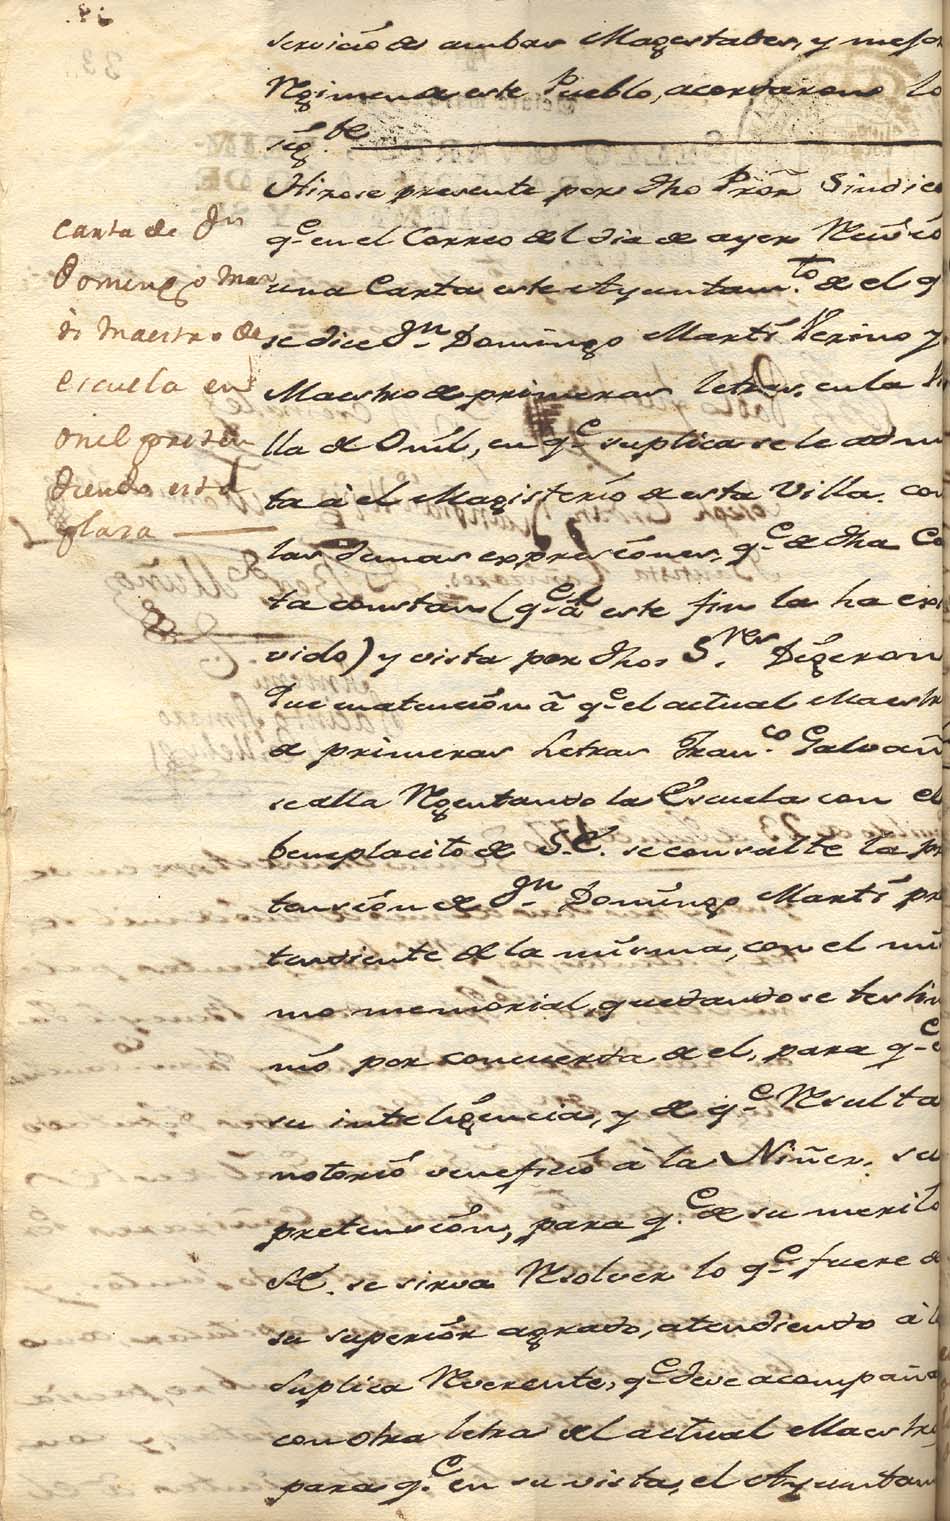 servició de ambas Magestades, y mejor
Rẽgimen de este Pueblo, acordaron lo
sigte
Hizose presente por dho Prõr Sindico
qe en el Correo del dia de ayer Reciuió
una Carta este Ayuntamto de el q
se dice Dn Domingo Martí Vezino y
Maestro de primeras letras, en la Vi
lla de Onil, en qe suplica se le admi
ta á el Magisterio de esta Villa con
las demas expreciones, qe de dha Ca
ta constan (qe á este fin la ha exi
vido) y vista por dhos Sres Digeron
Que en atención á qe el actual Maestro
de primeras Letras Franco Galvañ
se alla Rẽgentando la Escuela con el
beneplacito de S.E. se consulte la pre
tención de Dn Domingo Martí pre
tendiente de la misma, con el mis
mo memorial, quedandose testimo
nió por concuerda de el, para qe
su inteligencia, y de qe Resulta
notorió venefició á la Niñez, su
pretención, para qe de su merito
S.E. se sirva Resolver lo qe fuere de
su superiór agrado, atendiendo á la
suplica Reverente, qe deve acompañar
con otra letra del actual Maestro,
para qe en su vista, el Ayuntam
Carta de Dn
Domingo Mar
ti Maestro de
escuela en
onil preten
diendo esta
plaza